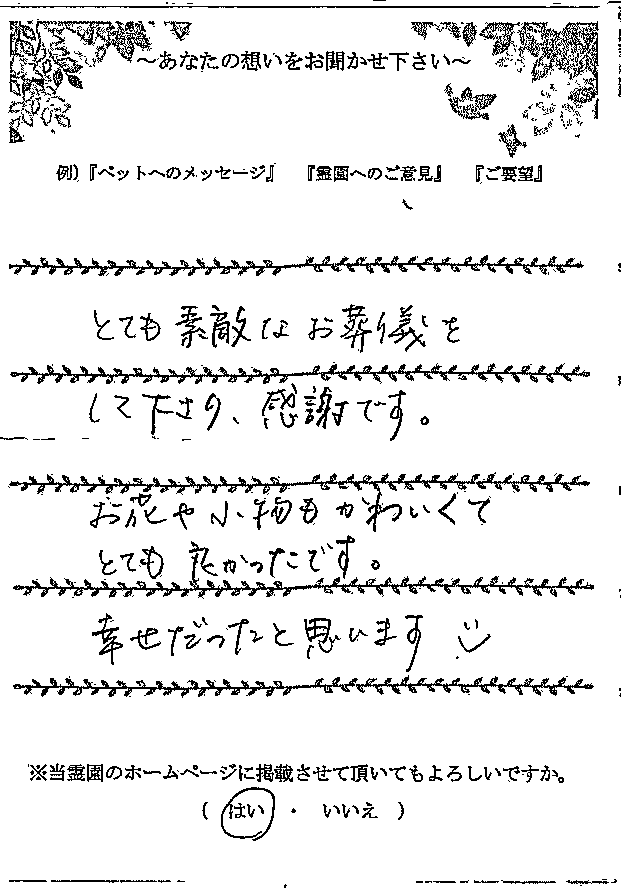 ～あなたの想いをお聞かせ下さい～
例）『ペットへのメッセージ』　『霊園へのご意見』　『ご要望』
とても素敵なお葬儀を
して下さり、感謝です。
お花や小物もかわいくて
とても良かったです。
幸せだったと思います
※当霊園のホームページに掲載させて頂いてもよろしいですか。
（　はい　・　いいえ　）